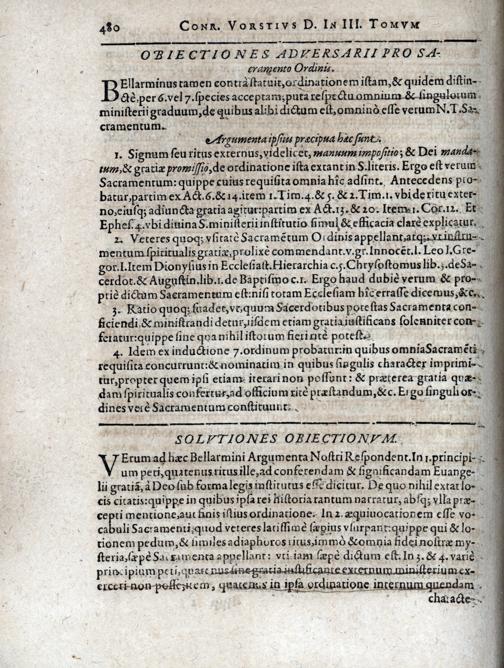 480 CONR. VORSTIVS D. IN III. TOMVM
OBIECTIONES ADVERSARII PRO SA-
cramento Ordinis.
BEllarminus tamen contrà statuit, ordinationem istam, & quidem distin-
ctè, per 6. vel 7. species acceptam, puta respectu omnium & singulorum
ministerii graduum, de quibus alibi dictum est, omninò esse verum N. T. Sa-
cramentum.
Argumenta ipsius præcipua hæc sunt.
1. Signum seu ritus externus, videlicet, manuum impositio; & Dei manda-
tum, & gratiæ promissio, de ordinatione ista extant in S. literis. Ergo est verum
Sacramentum: quippe cuius requisita omnia hîc adsint. Antecedens pro-
batur, partim ex Act. 6. & 14. item 1. Tim. 4. & 5. & 2. Tim. 1. vbi de ritu exter-
no, eiusq; adiuncta gratia agitur: partim ex Act. 13. & 20. Item 1. Cor. 12. Et
Ephes. 4. vbi diuina S. ministerii institutio simul & efficacia clarè explicatur.
2. Veteres quoq; vsitatè Sacramētum Ordinis appellant, atq; vt instru-
mentum spiritualis gratiæ, prolixè commendant. v. gr. Innocēt. I. Leo I. Gre-
gor. I. Item Dionysius in Ecclesiast. Hierarchia c. 5. Chrysostomus lib. 3. de Sa-
cerdot. & Augustin. lib. 1. de Baptismo c. 1. Ergo haud dubiè verum & pro-
priè dictum Sacramentum est: nisi totam Ecclesiam hîc errasse dicemus, &c.
3. Ratio quoq; suadet, vt, quum Sacerdotibus potestas Sacramenta con-
ficiendi & ministrandi detur, iisdem etiam gratia iustificans solenniter con-
feratur: quippe sine qua nihil istorum fieri ritè potest.
4. Idem ex inductione 7. ordinum probatur: in quibus omnia Sacramēti
requisita concurrunt: & nominatim in quibus singulis character imprimi-
tur, propter quem ipsi etiam iterari non possunt: & præterea gratia quæ-
dam spiritualis confertur, ad officium ritè præstandum, &c. Ergo singuli or-
dines verè Sacramentum constituunt.
SOLVTIONES OBIECTIONVM.
VErum ad hæc Bellarmini Argumenta Nostri Respondent. In 1. principi-
um peti, quatenus ritus ille, ad conferendam & significandam Euange-
lii gratiā, à Deo sub forma legis institutus esse dicitur. De quo nihil extat lo-
cis citatis: quippe in quibus ipsa rei historia tantum narratur, absq; vlla præ-
cepti mentione, aut finis istius ordinatione. In 2. æquiuocationem esse vo-
cabuli Sacramenti, quod veteres latissimè sæpius vsurpant: quippe qui & lo-
tionem pedum, & similes adiaphoros ritus, immò & omnia fidei nostræ my-
steria, sæpè Sacramenta appellant: vti iam sæpè dictum est. In 3. & 4. variè
principium peti, quatenus sine gratia iustificante externum ministerium ex-
erceri non posse; item, quatenus in ipsa ordinatione internum quendam
characte-